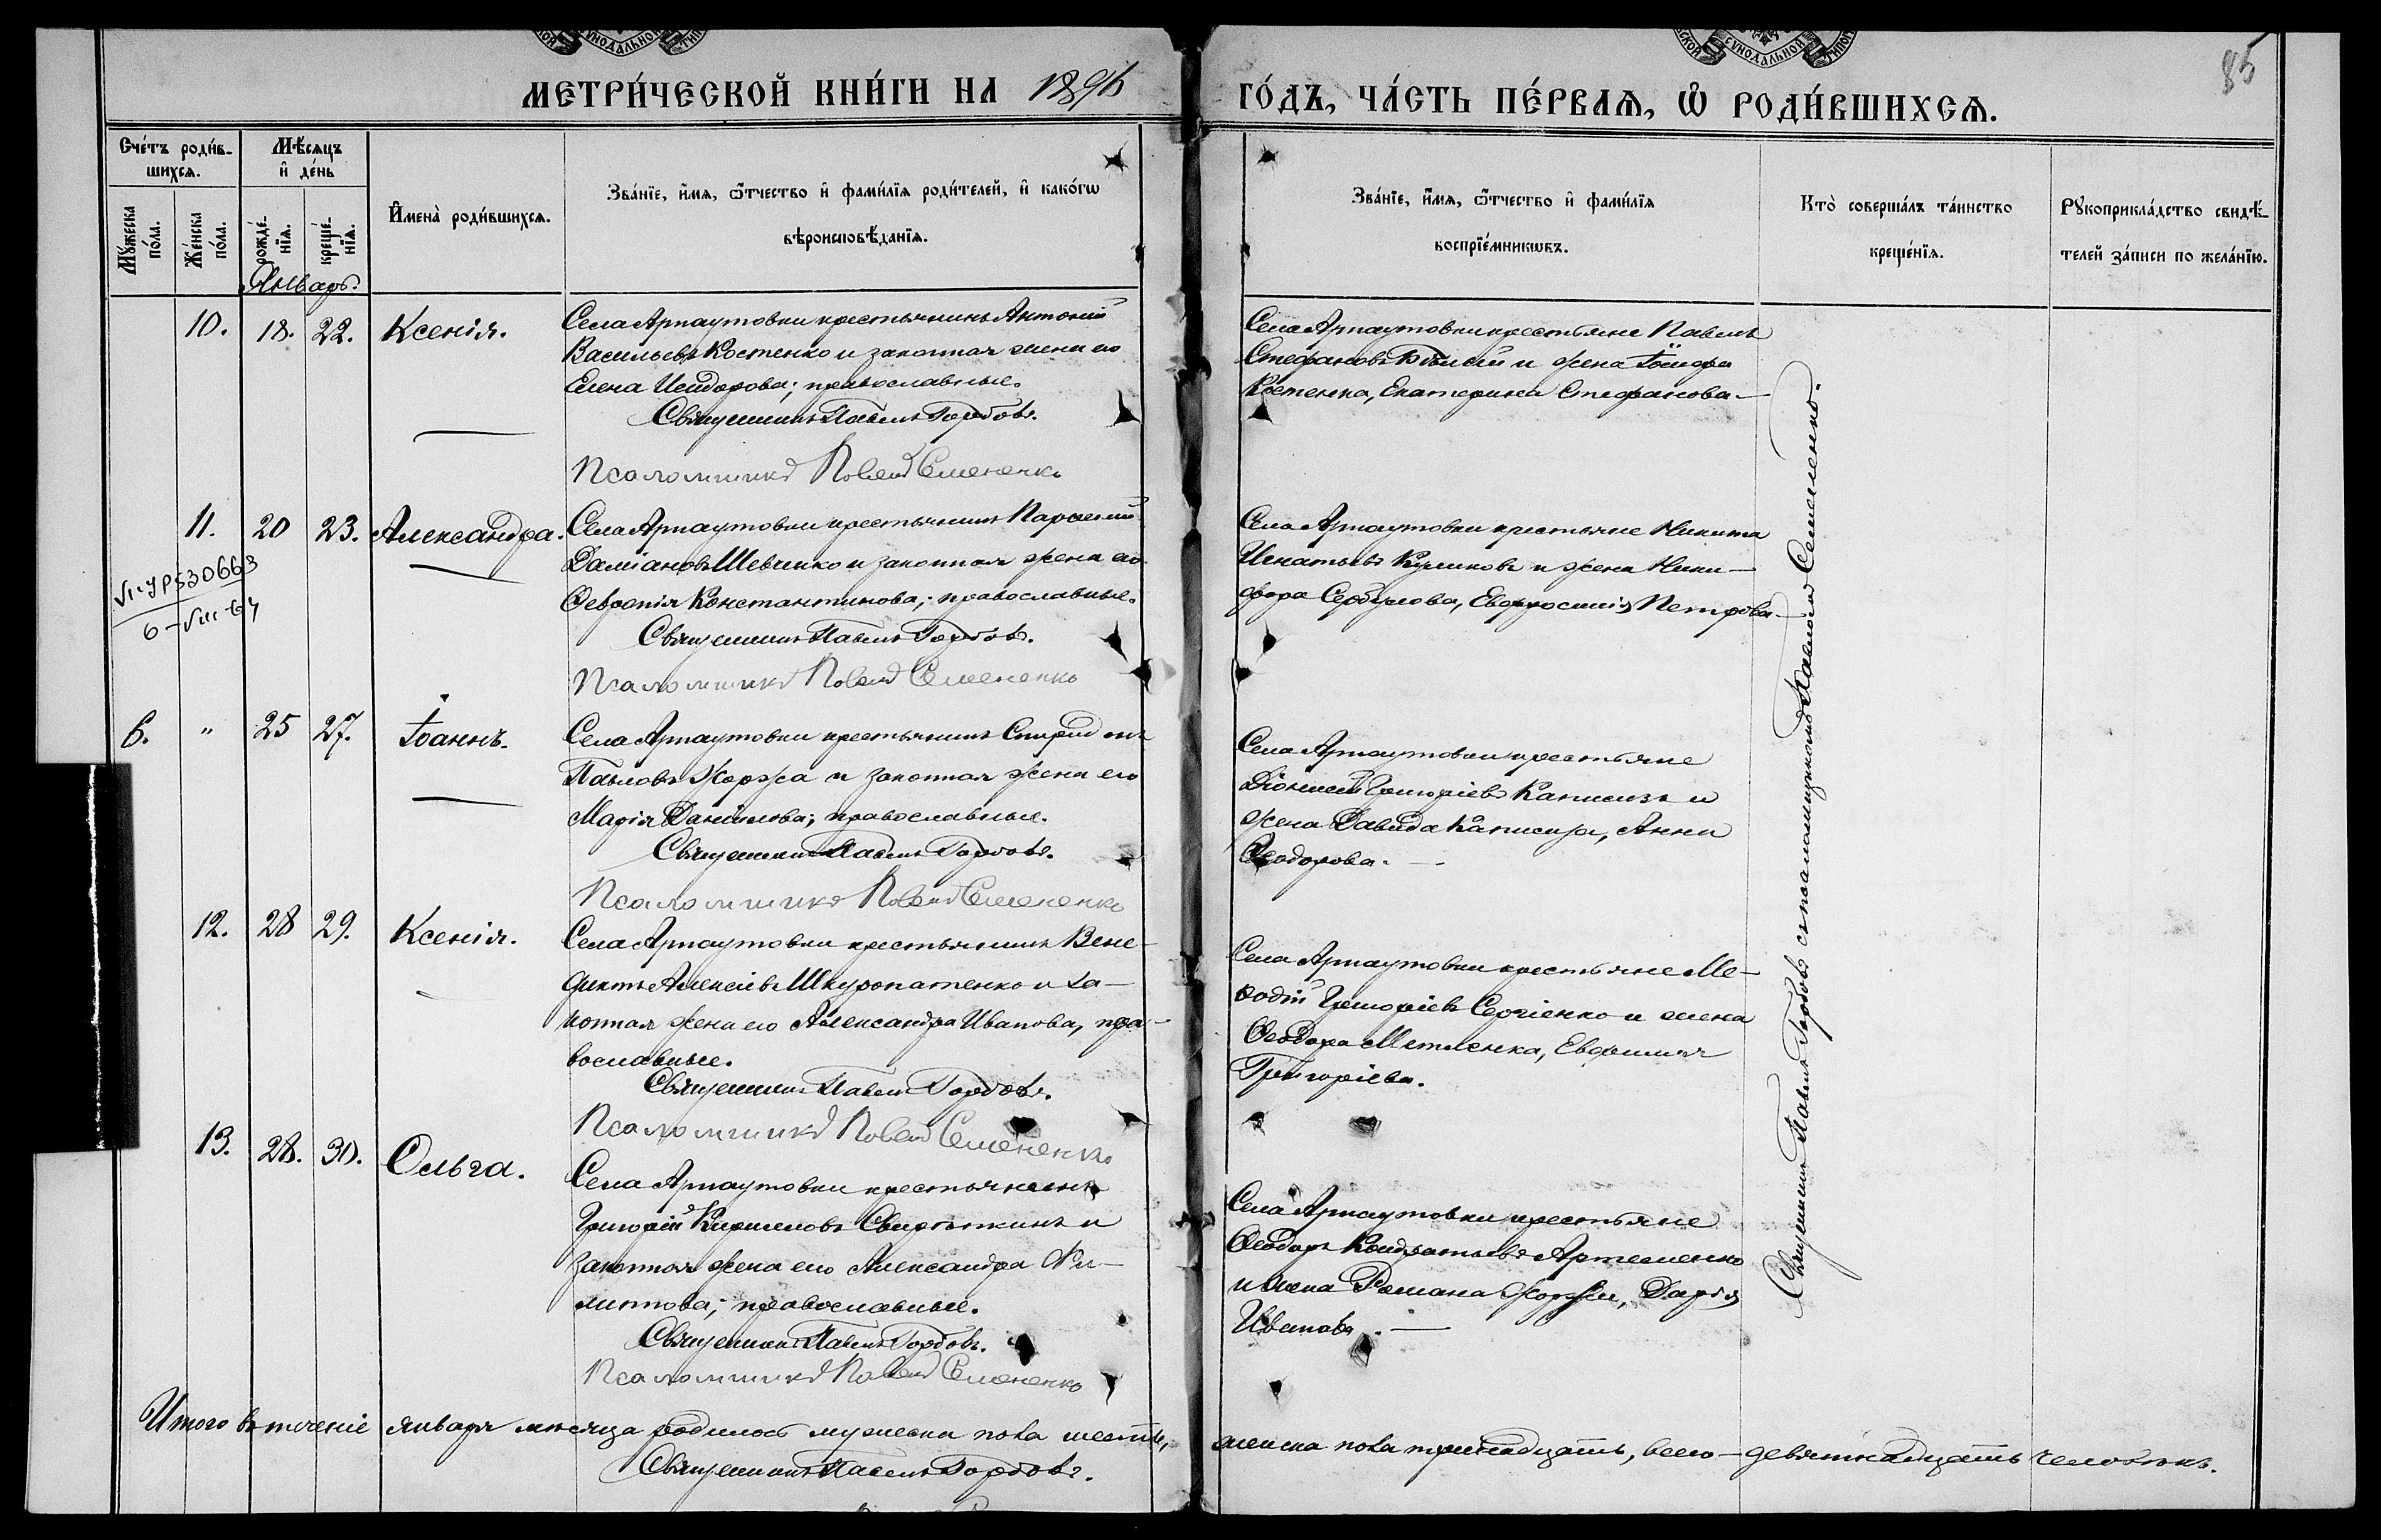 МЕТРИ́ЧЕСКОЙ КНИ́ГИ НА 1896 ГО́ДЪ, ЧА́СТЬ ПЕ́РВАѦ, Ѡ҆ РОДИ́ВШИХСѦ.
85
Сче́тъ роди́в-
шихсѧ.
Мѣ́сѧцъ
и҆ де́нь
Мꙋ́жеска
по́ла.
Же́нска
по́ла.
рожде́-
нїѧ.
креще́-
нїѧ.
И҆мена̀ роди́вшихсѧ.
Зва́нїе, и҆́мѧ, ѻ҆́тчество и҆ фами́лїѧ роди́телей, и҆ како́гѡ
вѣроисповѣ́данїѧ.
Зва́нїе, и҆́мѧ, ѻ҆́тчество и҆ фами́лїѧ
воспрїе́мникѡвъ.
Кто̀ соверша́лъ та́инство
креще́нїѧ.
Рꙋкоприкла́дство свидѣ́-
телей за́писи по жела́нїю.
Январь.
10. 18. 22. Ксенія.
Села Арнаутовки крестьянинъ Антоній
Васильевъ Костенко и законная жена его
Елена Исидорова; православные.
Священникъ Павелъ Горбовъ.
Псаломщикъ Павелъ Семененко
Села Арнаутовки крестьяне Павелъ
Стефановъ Бѣлый и жена Іосифа
Костенка, Екатерина Стефанова.—
11. 20 23. Александра.
Села Арнаутовки крестьянинъ Парѳеній
Даміановъ Шевченко и законная жена его
Февронія Константинова; православные.
Священникъ Павелъ Горбовъ.
Псаломщикъ Павелъ Семененко
Села Арнаутовки крестьяне Никита
Игнатьевъ Куликовъ и жена Ники-
фора Сербулова, Евфросинія Петрова.—
VII-УР530663
6-VIII-64
6. " 25 27. Іоаннъ.
Села Арнаутовки крестьянинъ Спиридонъ
Павловъ Коржа и законная жена его
Марія Даніилова; православные.
Священникъ Павелъ Горбовъ.
Псаломщикъ Павелъ Семененко
Села Арнаутовки крестьяне
Діонисій Григоріевъ Каписизъ и
жена Давида Каписиза, Анна
Ѳеодорова.—
12. 28 29. Ксенія.
Села Арнаутовки крестьянинъ Вене-
диктъ Алексіевъ Шкуропатенко и за-
конная жена его Александра Иванова, пра-
вославные.
Священникъ Павелъ Горбовъ.
Псаломщикъ Павелъ Семененко
Села Арнаутовки крестьяне Ме-
ѳодій Григоріевъ Сергіенко и жена
Ѳеодора Метленка, Евфимія
Григоріева.
13. 28. 30. Ольга.
Села Арнаутовки крестьянинъ
Григорій Кирилловъ Свирѣпкинъ и
законная жена его Александра Фи-
липпова; православные.
Священникъ Павелъ Горбовъ.
Псаломщикъ Павелъ Семененко
Села Арнаутовки крестьяне
Ѳеодоръ Кондратьевъ Артеменко
и жена Романа Коржа, Дарія
Иванова.—
Священникъ Павелъ Горбовъ съ псаломщикомъ Павломъ Семененко.
Итого въ теченіе января мѣсяца родилось мужеска пола шесть, женска пола тринадцать, всего — девятнадцать человѣкъ.
Священникъ Павелъ Горбовъ.